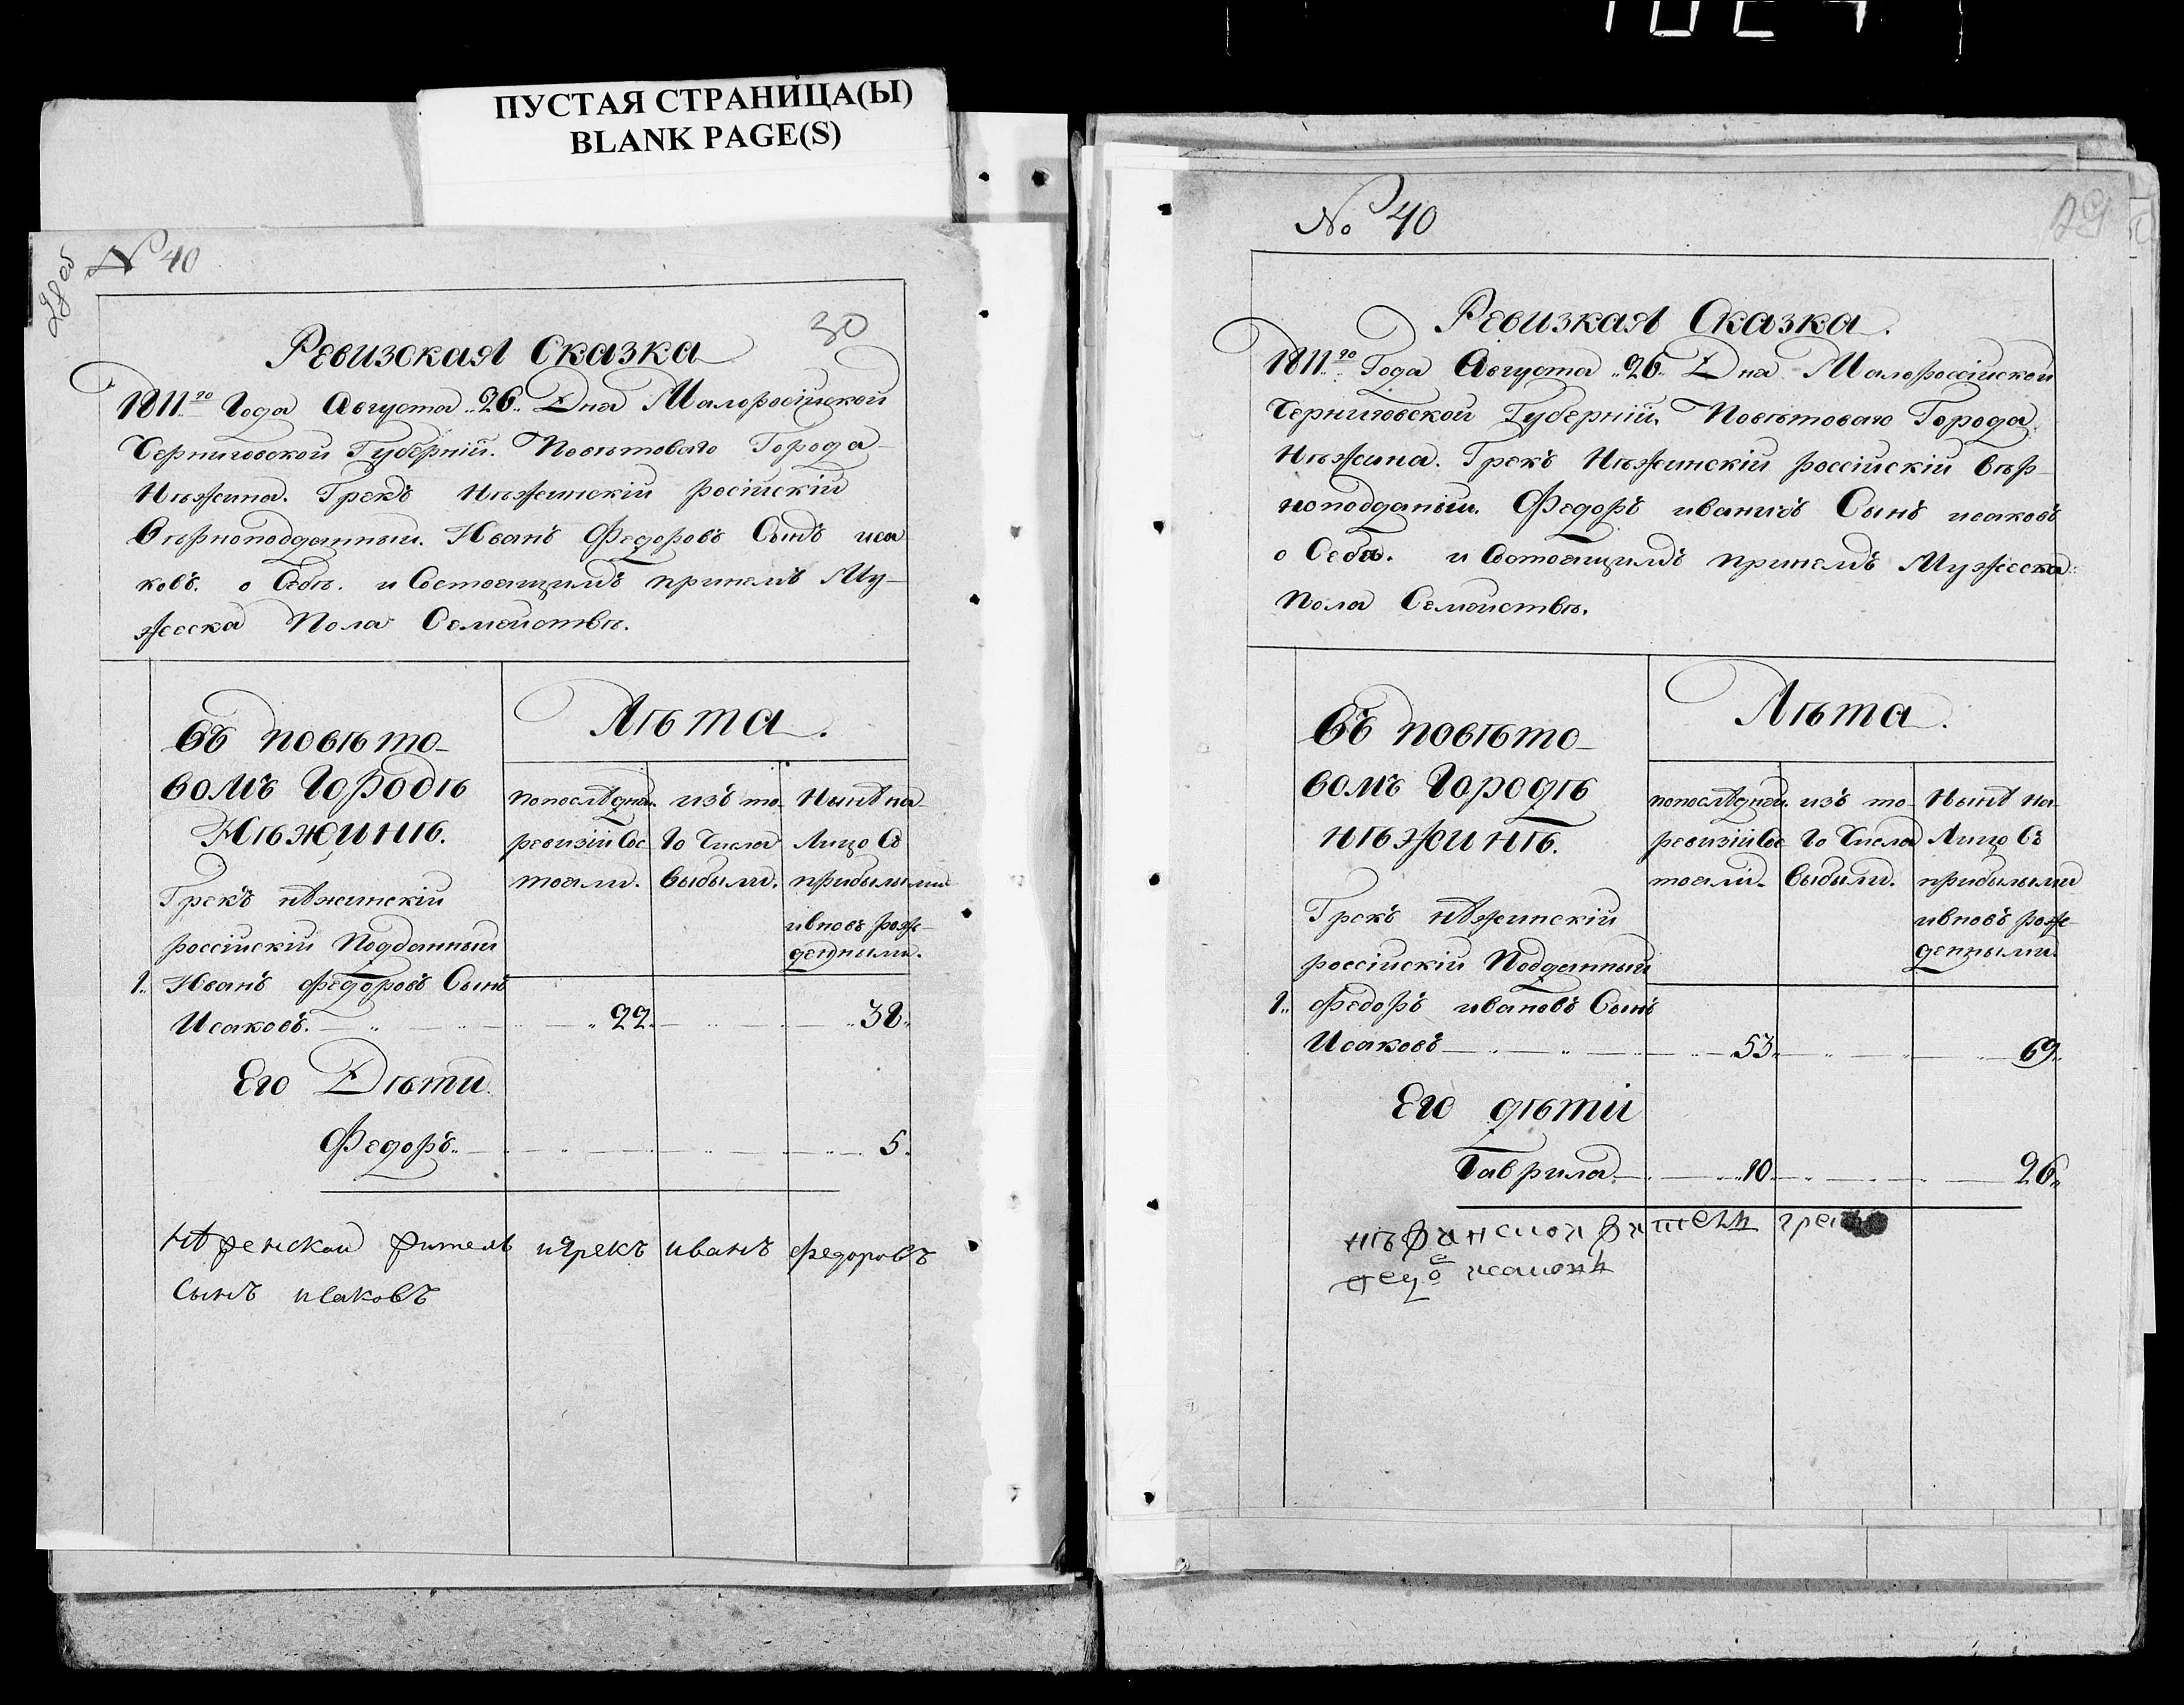 ПУСТАЯ СТРАНИЦА(Ы)
BLANK PAGE(S)
28 об
№ 40
30
Ревизская Сказка
1811го Года Августа 26. Дня Малоросійской
Черниговской Губерніи. Повѣтоваго Города
Нѣжина. Грекъ Нѣжинскій російскій
вѣрноподданный. Иванъ Федоровъ Сынъ иса
ковъ. о Себѣ. и Состоящимъ принемъ Му-
жеска Пола Семействѣ.
Въ повѣто-
вомъ Городѣ
Нѣжинѣ.
Лѣта.
попослѣдней ревизіи Состояли.
изъ того Числа выбыли.
Нынѣ на Лицо Съ прибылыми ивновь рожденными.
Грекъ нѣжинскій
россійскій Подданный
1. Иванъ Федоровъ Сынъ
Исаковъ. 22. 38.
Его Дѣти
Федоръ. 5.
нѣженскои житель игрекъ иванъ федоровъ
Сынъ исаковъ
№ 40
29
Ревизкая Сказка.
1811го Года Августа 26. Дня Малороссійской
Черниговской Губерніи. Повѣтоваго Города
Нѣжина. Грекъ Нѣжинскій россійскій вѣр
ноподданыи. Федоръ ивановъ Сынъ исаковъ
о Себѣ. и Состоящимъ принемъ Мужеска
Пола Семействѣ.
Въ повѣто-
вомъ Городѣ
нѣжинѣ.
Лѣта.
попослѣдней ревизіи Состояли.
изъ того Числа Выбыли.
Нынѣ на Лицо Съ прибылыми ивновь рожденными.
Грекъ нѣжинскій
россійскій Подданный
1. Федоръ ивановъ Сынъ
Исаковъ 53. 69.
Его дѣти
Гаврила 10. 26.